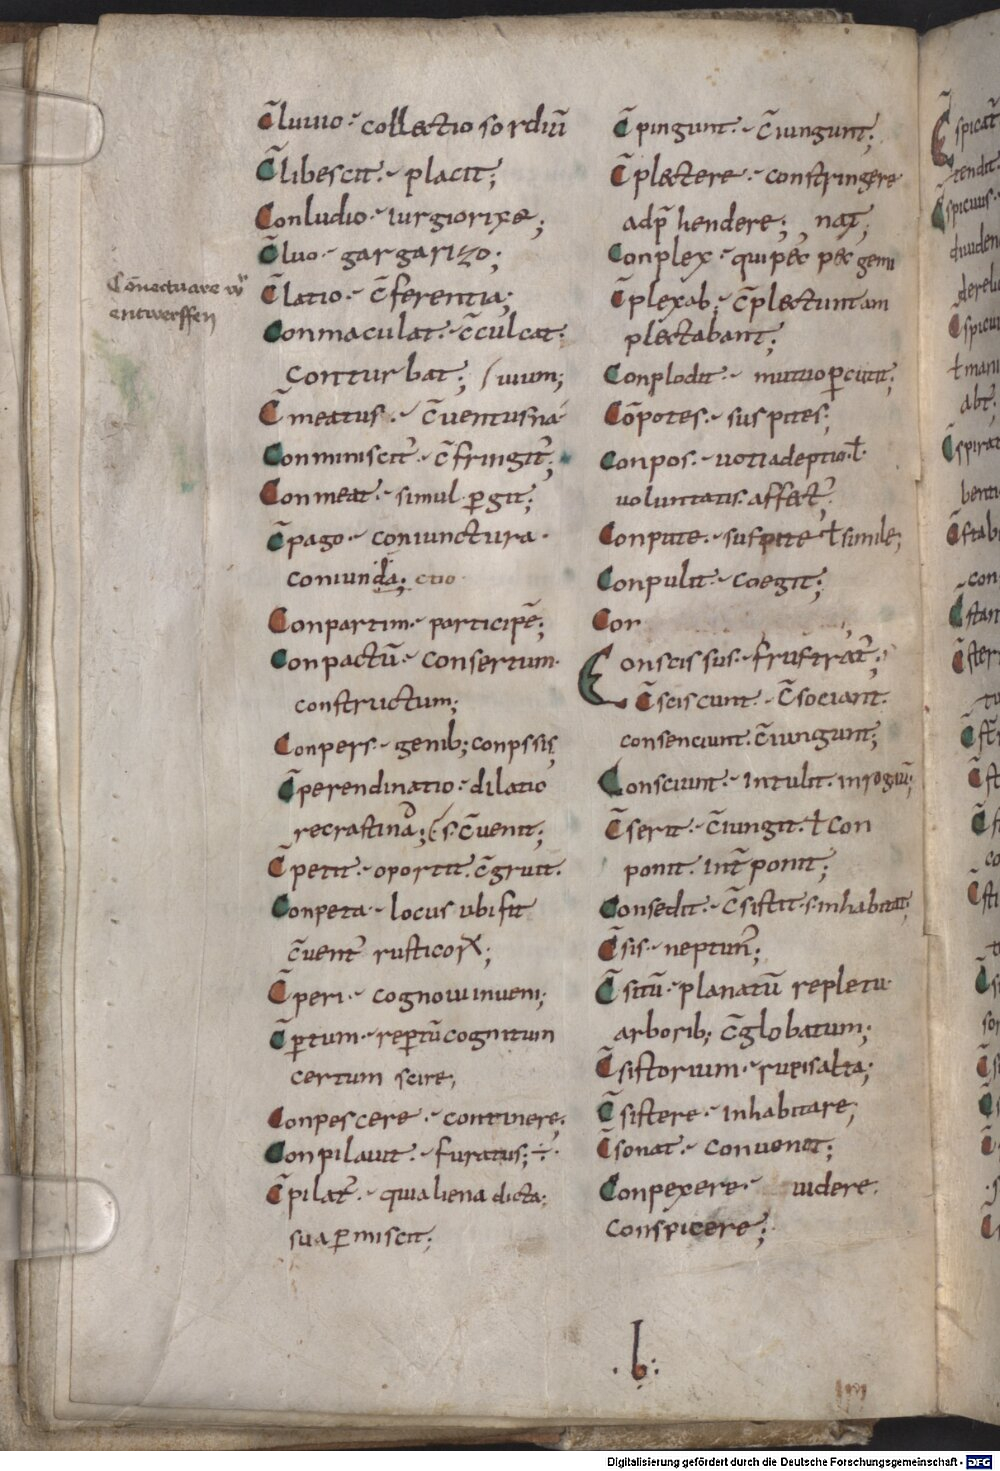 C̄luuio · collectio sordiū
C̄libescit · placit;
Conludio · iurgiorixe;
C̄luo · gargarizo;
C̄latio · c̄ferentia;
Conmaculat · c̄culcat
conturbat; / uium;
C̄meatus · c̄uentus na
Conminiscit̄ · c̄fringit̄;
Conmeat · simul ꝑgit;
C̄pago · coniunctura ·
coniunda; ctio
Conpartim · participē;
Conpactū · consertum
constructum;
Conpers · genib; conpssis;
C̄perendinatio · dilatio
recrastina; / s c̄uenit;
C̄petit · oportit. c̄gruit.
Conpeta · locus ubi fit
c̄uent̄ rusticoꝝ;
C̄peri · cognoui inueni;
C̄ꝑtum · reꝑtū cognitum
certum scire;
Conpescere · continere;
Conpilauit · furatus; ÷
C̄pilat̄ · qui aliena dicta
sua ꝑmiscit;
Cōnectuare
entwerffen
C̄pingunt · c̄iungunt;
C̄plectere · constringere
adp̄hendere; , nat̄;
Conplex · qui pec pec gemi
C̄plexab; c̄plectuntam
plectabant;
Conplodit · mutuo ꝑcutit;
Cōpotes · suspites;
Conpos · uoti adeptio ł
uoluntatis. affect̄;
Conpute · suspite ł simile;
Conpulit · coegit;
Con
Conscissus · frustrat̄;
C̄sciscunt · c̄sociant
consenciunt. c̄iungunt;
Consciunt · intulit. inrogiū;
C̄serit · c̄iungit. ł con
ponit. int̄ponit;
Consedit · c̄sistit. s. inhabitat;
C̄sis · neptun̄;
C̄sitū · planatū repletu
arborib; c̄globatum;
C̄sistorium · rupis alta;
C̄sistere · inhabitare;
C̄sonat · conuenit;
Conpexere · uidere.
conspicere;
· b :
Digitalisierung gefördert durch die Deutsche Forschungsgemeinschaft - DFG